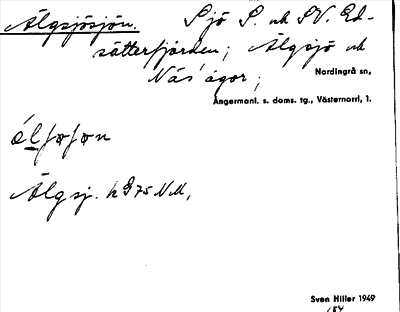 Älgsjösjön. Sjö S. och SV. Ed-
sätterfjärden; Älgsjö och
Näs' ägor;
Nordingrå sn,
Ångermanl. s. doms. tg., Västernorrl, l.
Älgsj.
Sven Hiller 1949